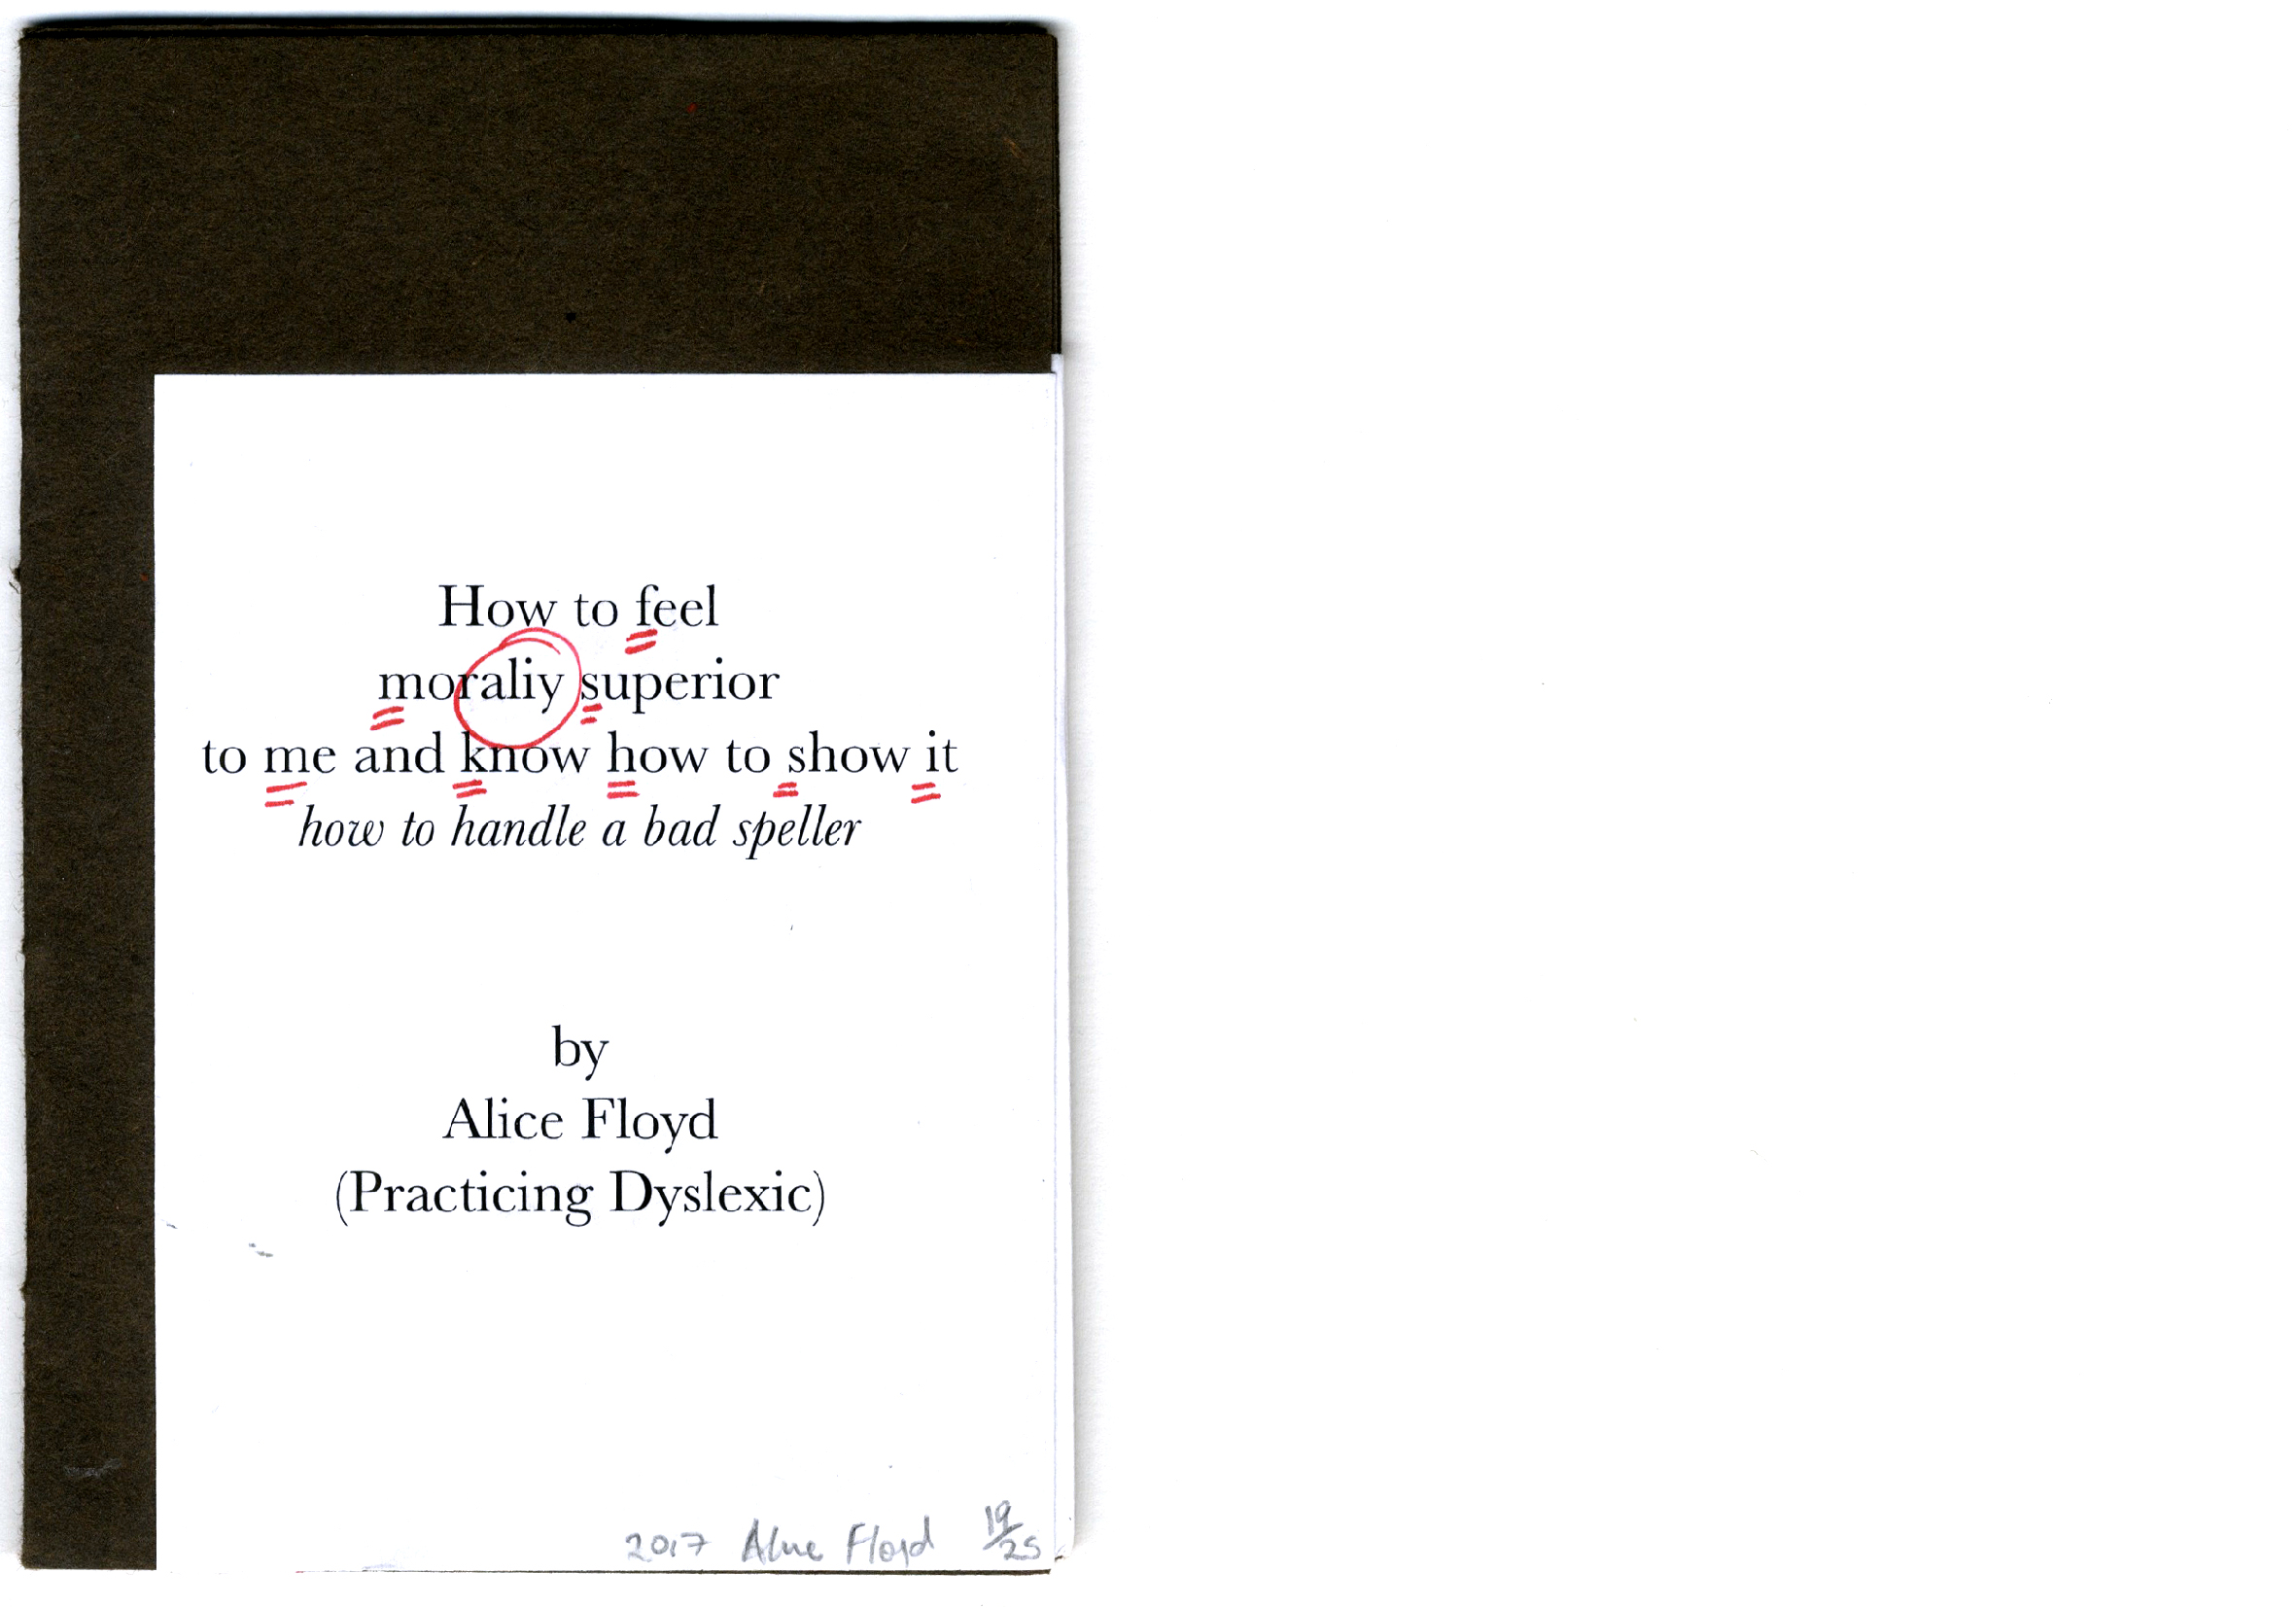 How to feel
moraliy superior
to me and know how to show it
how to handle a bad speller
by
Alice Floyd
(Practicing Dyslexic)
2017 Alice Floyd 19/25